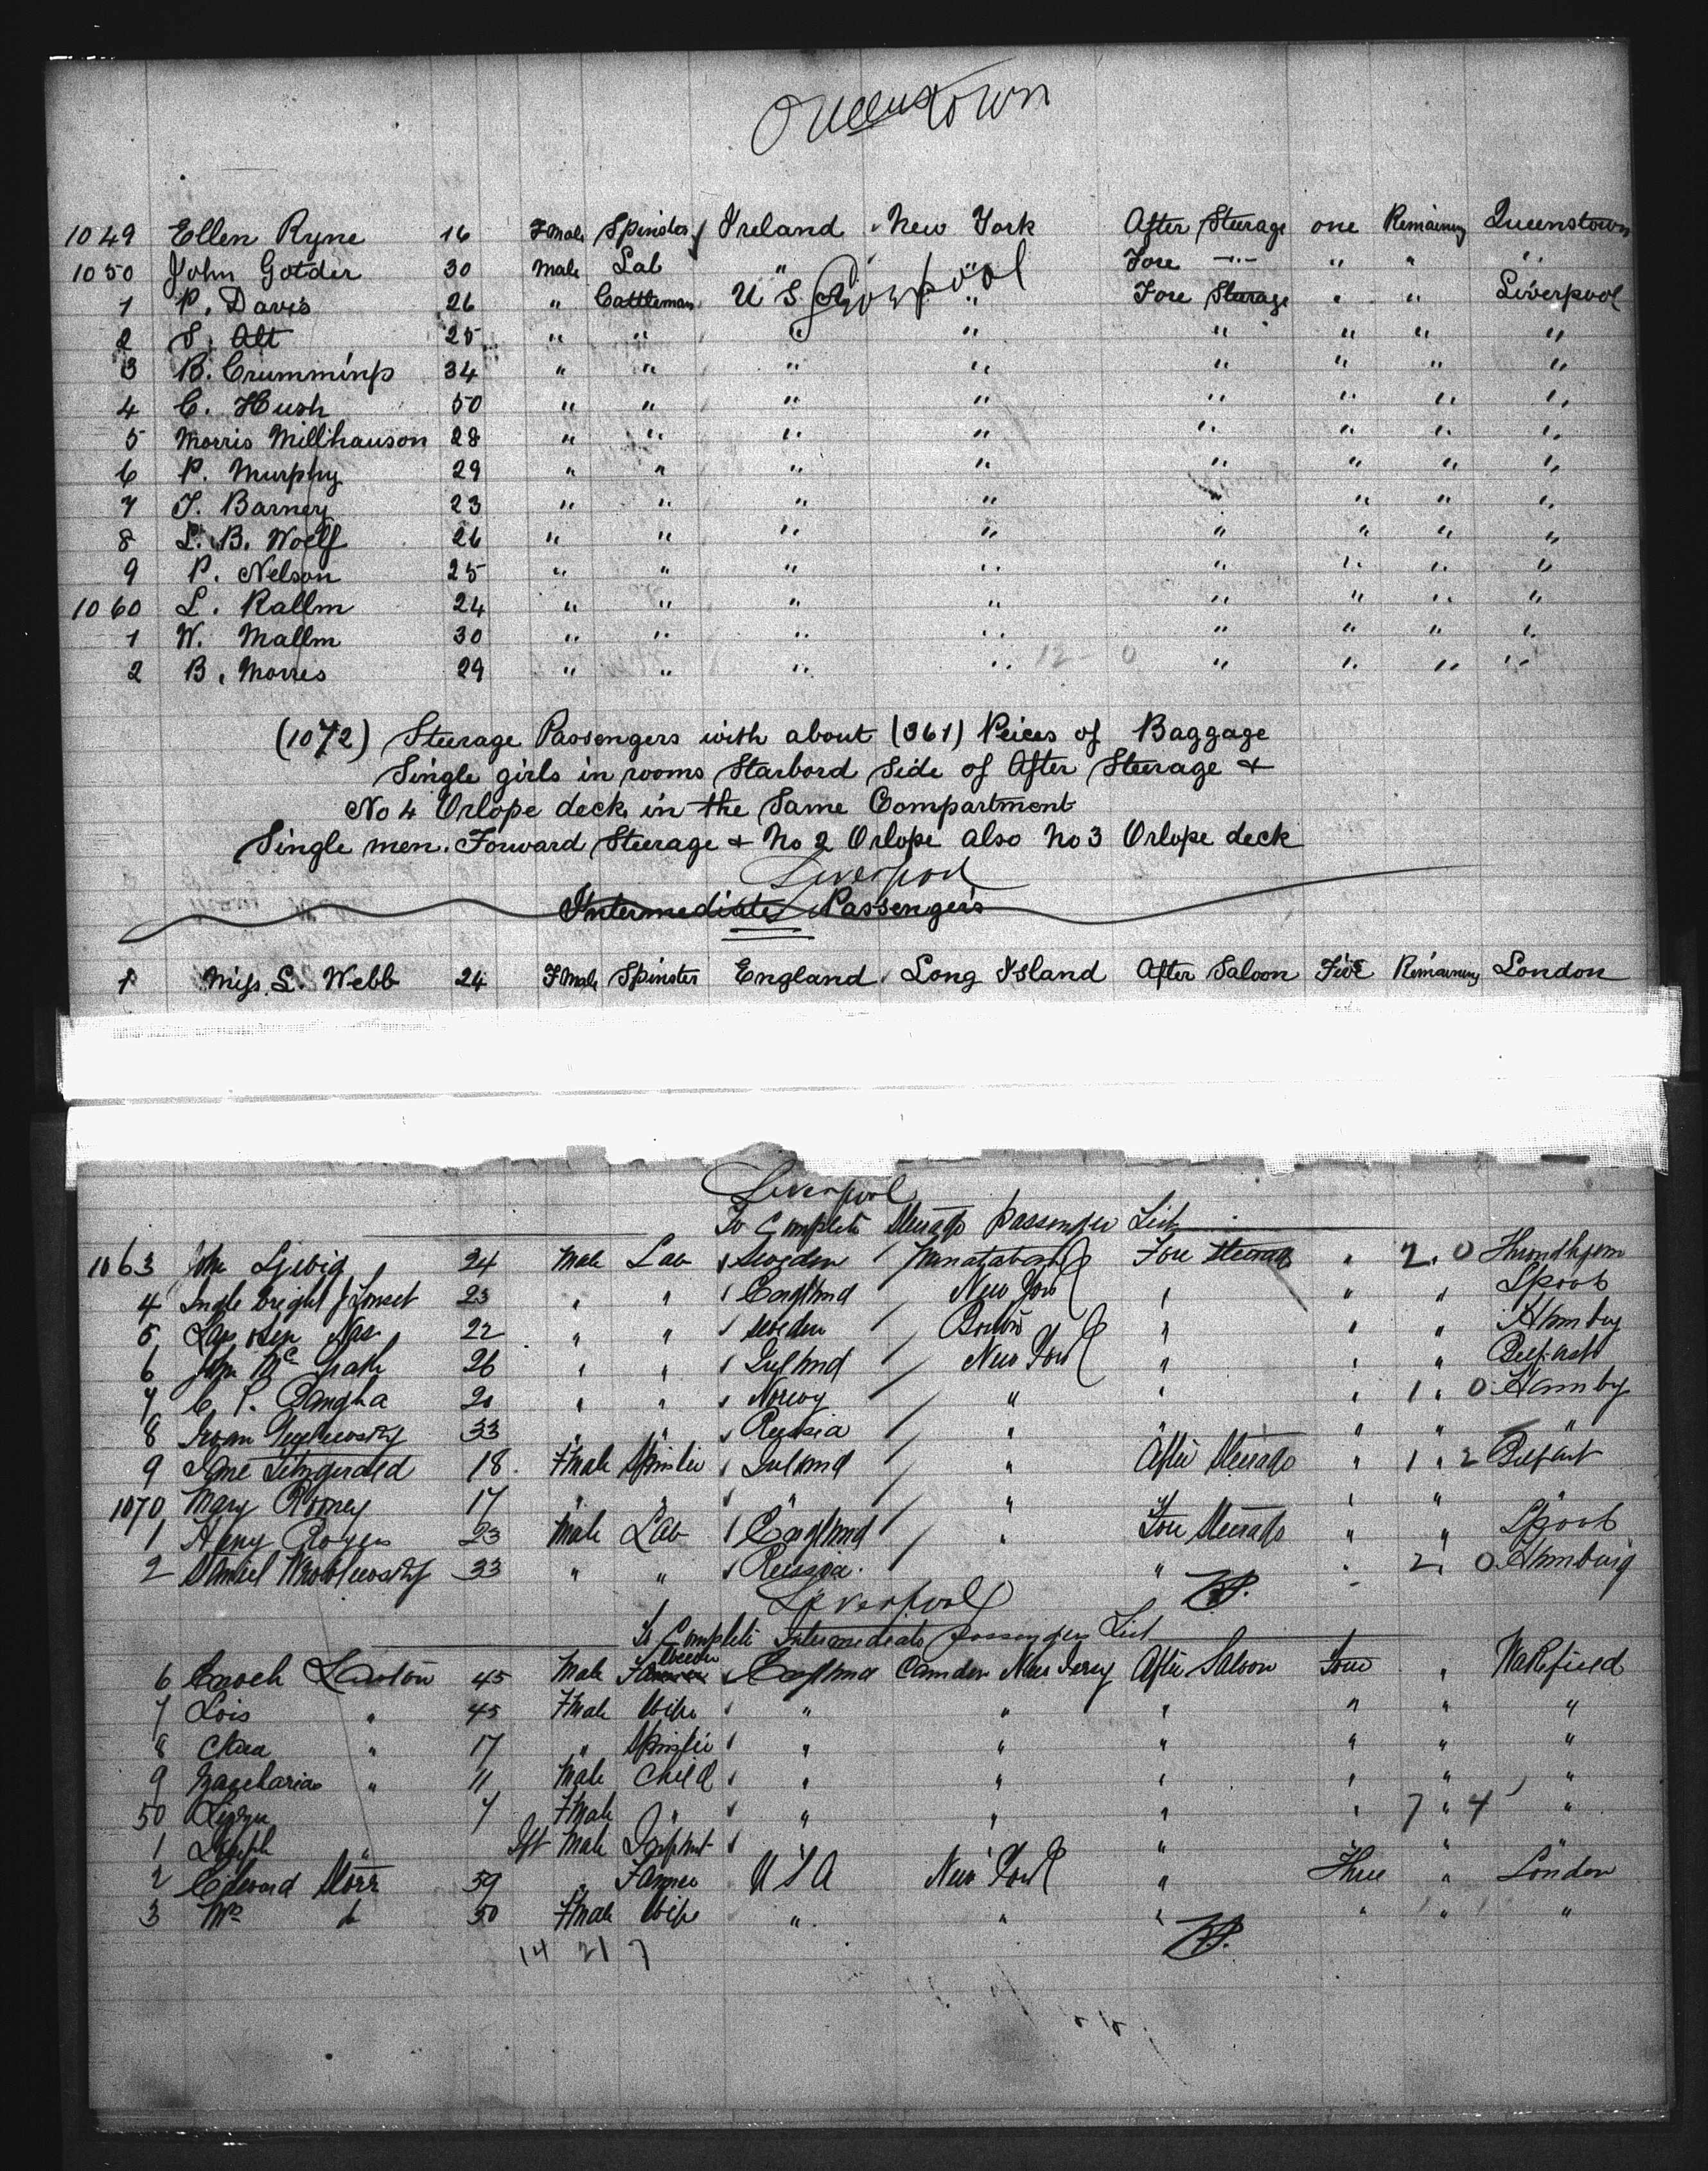 Queenstown
1049 Ellen Ryne 16 Fmale Spinster Ireland New York After Steerage one Remaining Queenstown
1050 John Golder 30 Male Lab " " Fore -"- " " "
Liverpool
1 P. Davis 26 " Cattleman U S A " Fore Steerage " " Liverpool
2 S. Alt 25 " " " " " " " "
3 B. Crummins 34 " " " " " " " "
4 C. Hush 50 " " " " " " " "
5 Morris Millhauson 28 " " " " " " " "
6 P. Murphy 29 " " " " " " " "
7 J. Barney 23 " " " " " " "
8 L. B. Woelf 26 " " " " " " " "
9 P. Nelson 25 " " " " " " " "
1060 L. Rallm 24 " " " " " " " "
1 W. Mallm 30 " " " " " " " "
2 B. Morris 29 " " " " 12 0 " " " "
(1072) Steerage Passengers with about (361) Peices of Baggage
Single girls in rooms Starbord Side of After Steerage +
No 4 Orlope deck in the Same Compartment
Single men. Forward Steerage + No 2 Orlope also No 3 Orlope deck
Liverpool
Intermediate Passengers
1 Miss L. Webb 24 Fmale Spinster England Long Island After Saloon Five Remaining London
Liverpool
To Complete Steerage passenger List
1063 John 24 Male Lab Sweden Fore Steerage " 2 " 0
4 23 " " England New York " " "
5 22 " " Sweden Boston " " "
6 John Mc Grath 26 " " Ireland New York " " " Belfast
7 C. P. 20 " " Norway " " " 1 " 0
8 33 " " Russia " " " " "
9 Jane Fitzgerald 18 Fmale Spinster Ireland " After Steerage " 1 " 2 Belfast
1070 Mary Rooney 17 " " " " " " "
1 Rogers 23 Male Lab England " Fore Steerage " "
2 Daniel Wroblewsky 33 " " Russia " " 2 " 0 Hamburg
Liverpool
To Complete Intermediate passengers List
6 Enoch Lawton 45 Male England Camden New Jersey After Saloon Four " Wakefield
7 Lois " 45 Fmale Wife " " " " " "
8 Clara " 17 " Spinster " " " " " "
9 Zacharias " 11 Male Child " " " " " "
50 7 Fmale " " " " " 7 " 4 "
1 Joseph " Ift Male Infant " " "
2 Edward 59 " Farmer U S A New York " Three " London
3 Mrs do 50 Fmale Wife " " " " " "
14 21 7